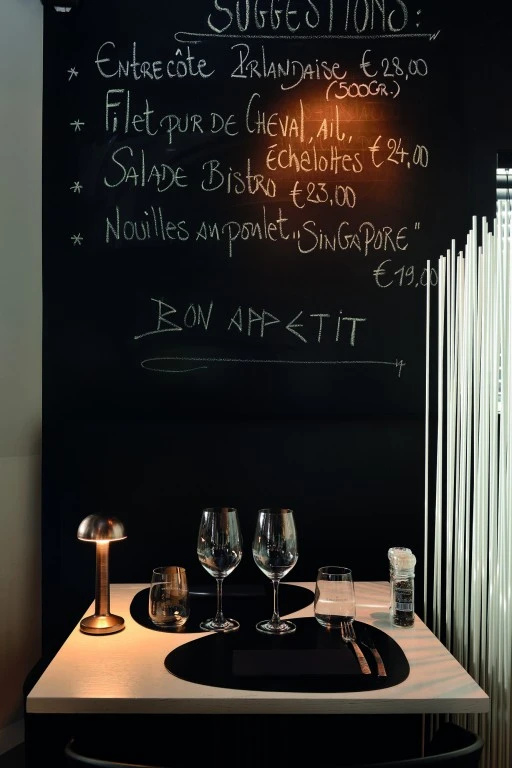 SUGGESTIONS:
* ENTRECÔTE IRLANDAISE €28,00
(500GR.)
* FILET PUR DE CHEVAL, AIL,
ÉCHALOTTES €24,00
* SALADE BISTRO €23,00
* NOUILLES AU POULET "SINGAPORE"
€19,00
BON APPETIT